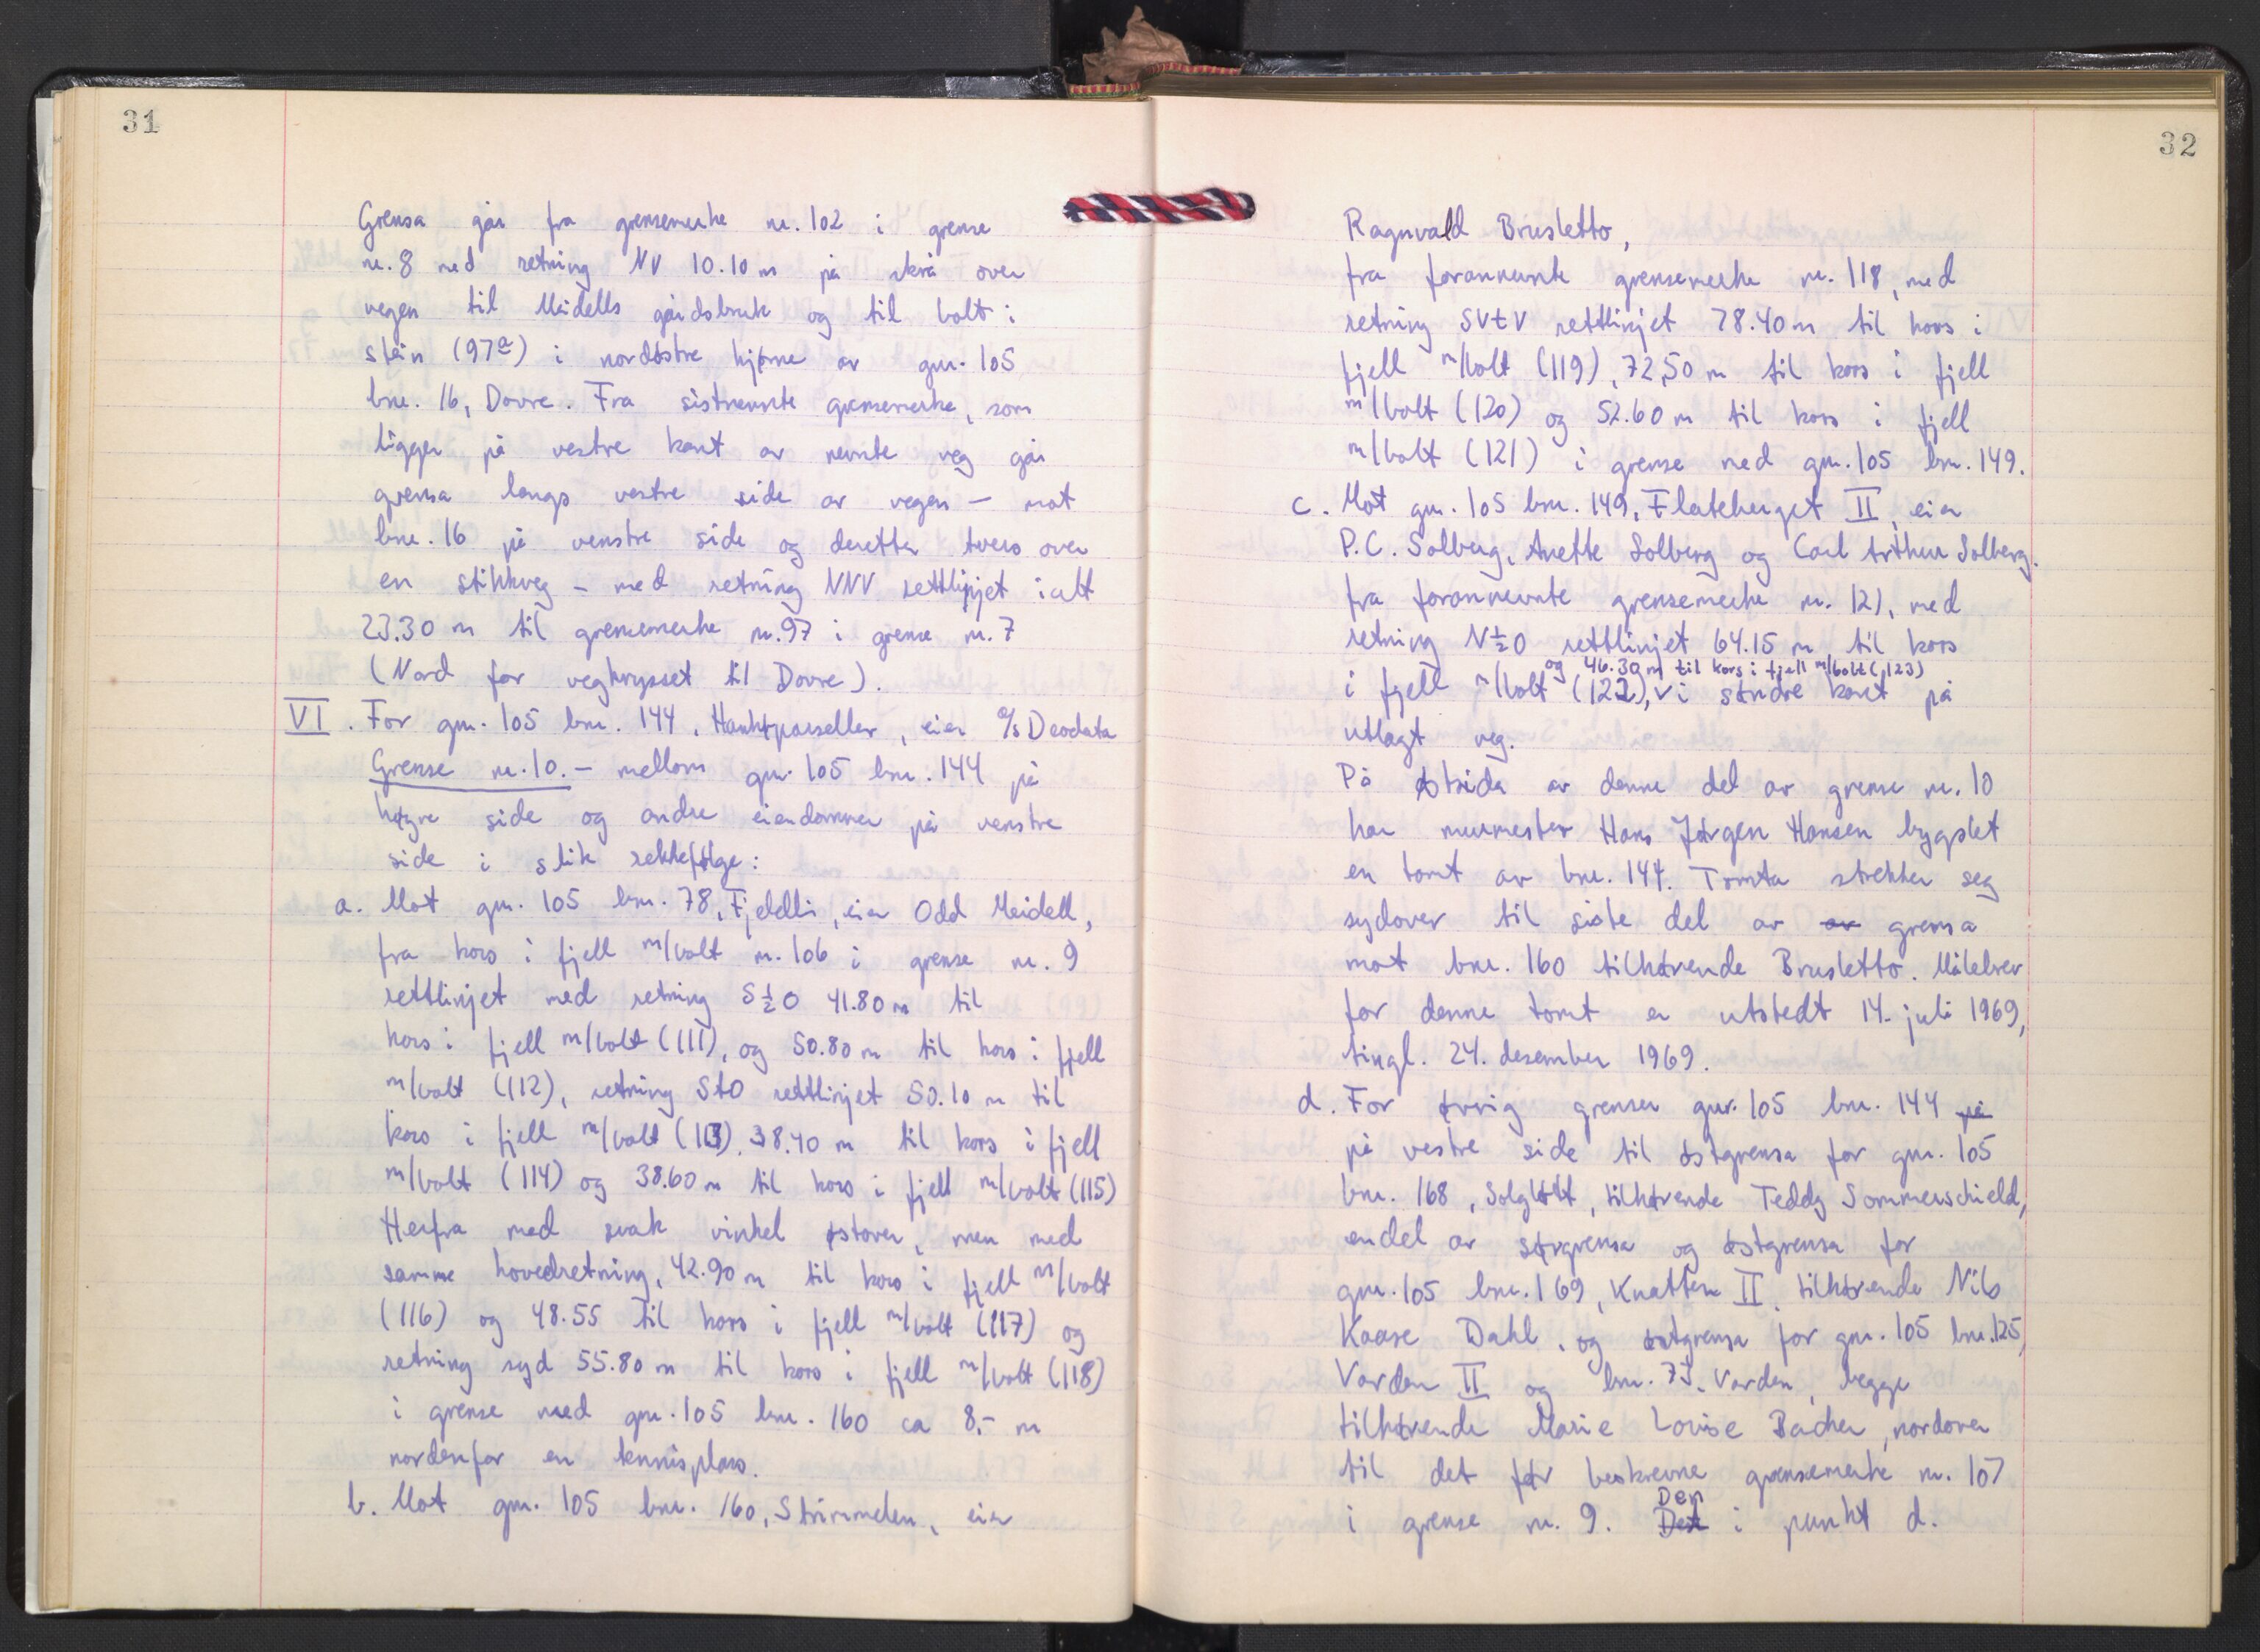 31
Grensa går fra grensemerke nr. 102 i grense
nr. 8 med retning NV 10.10 m på skrå over
vegen til Meidells gårdsbruk og til bolt i
stein (97a) i nordøstre hjørne av gnr. 105
bnr. 16, Dovre. Fra sistnevnte grensemerke, som
ligger på vestre kant av nevnte veg går
grensa langs vestre side av vegen – mot
bnr. 16 på venstre side og deretter tvers over
en stikkveg – med retning NNV rettlinjet ialt
23.30 m til grensemerke nr. 97 i grense nr. 7
(Nord for vegkrysset til Dovre).
VI. For gnr. 105 bnr. 144, Haukøparseller, eier A/S Deodata
Grense nr. 10. – mellom gnr. 105 bnr. 144 på
høgre side og andre eiendommer på venstre
side i slik rekkefølge:
a. Mot gnr. 105 bnr. 78, Fjeldli, eier Odd Meidell,
fra kors i fjell m/bolt nr. 106 i grense nr. 9
rettlinjet med retning S½O 41.80 m til
kors i fjell m/bolt (111), og 50.80 m til kors i fjell
m/bolt (112), retning StO rettlinjet 50.10 m til
kors i fjell m/bolt (113), 38.40 m til kors i fjell
m/bolt (114) og 38.60 m til kors i fjell m/bolt (115)
Herfra med svak vinkel østover, men med
samme hovedretning, 42.90 m til kors i fjell m/bolt
(116) og 48.55 til kors i fjell m/bolt (117) og
retning syd 55.80 m til kors i fjell m/bolt (118)
i grense med gnr. 105 bnr. 160 ca 8.- m
nordenfor en tennisplass.
b. Mot gnr. 105 bnr. 160, Strimmelen, eier
32
Ragnvald Brusletto,
fra forannevnte grensemerke nr. 118, med
retning SVtV rettlinjet 78.40 m til kors i
fjell m/bolt (119), 72,50 m til kors i fjell
m/bolt (120) og 52.60 m til kors i fjell
m/bolt (121) i grense med gnr. 105 bnr. 149.
c. Mot gnr. 105 bnr. 149, Flateberget II, eier
P.C. Solberg, Anette Solberg og Carl Arthur Solberg.
fra forannevnte grensemerke nr. 121, med
retning N½O rettlinjet 64.15 m til kors
og 46.30 m til kors i fjell m/bolt (123)
i fjell m/bolt (122), v i søndre kant på
utlagt veg.
På østsida av denne del av grense nr. 10
har murmester Hans Jørgen Hansen bygslet
en tomt av bnr. 144. Tomta strekker seg
sydover til siste del av av grensa
mot bnr. 160 tilhørende Brusletto. Målebrev
for denne tomt er utstedt 14. juli 1969,
tingl. 24. desember 1969.
d. For øvrig grenser gnr. 105 bnr. 144 på
på vestre side til østgrensa for gnr. 105
bnr. 168, Solgløtt, tilhørende Teddy Sommerschield,
endel av sørgrensa og østgrensa for
gnr. 105 bnr. 169, Knatten II, tilhørende Nils
Kaare Dahl, og østgrensa for gnr. 105 bnr. 125,
Varden II og bnr. 75, Varden, begge
tilhørende Marie Louise Bacher, nordover
til det før beskrevne grensemerke nr. 107
Den
i grense nr. 9. Det i punkt d.